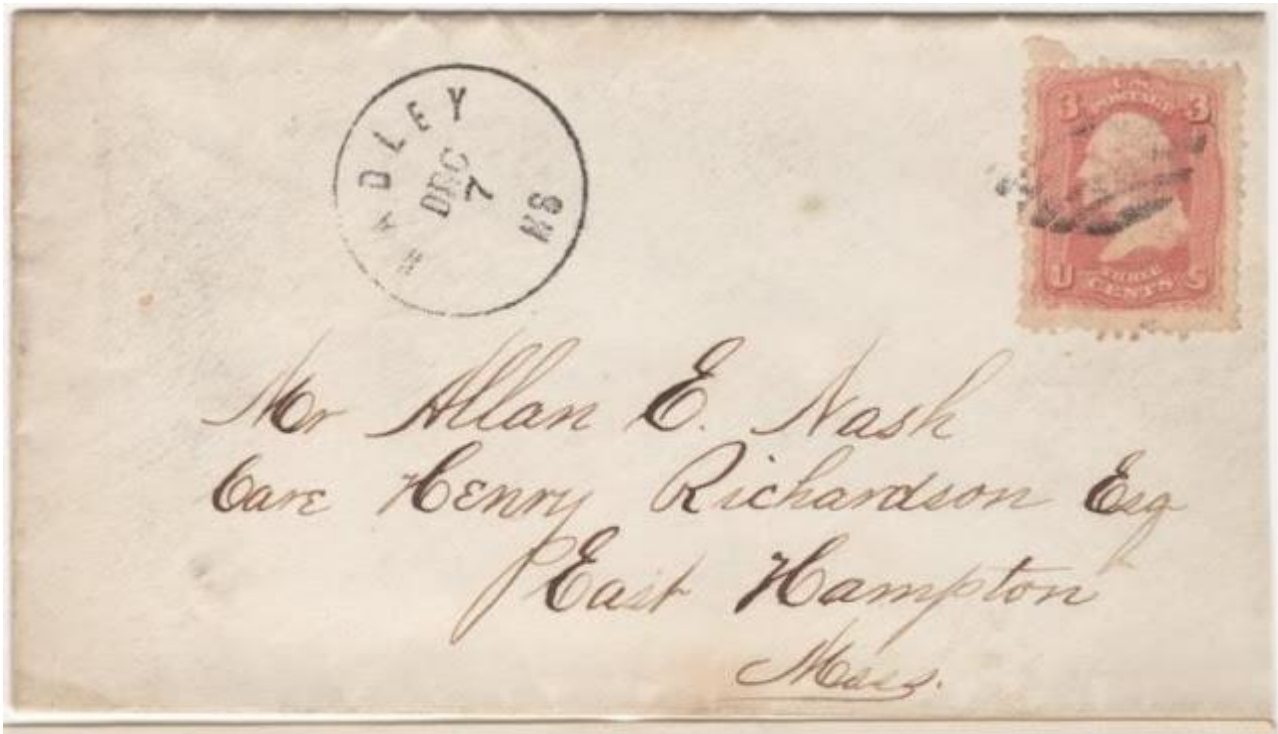 HADLEY
DEC
7
MS
3 U.S. POSTAGE 3
U THREE CENTS S
Mr Allan E. Nash
Care Henry Richardson Esq
East Hampton
Mass.